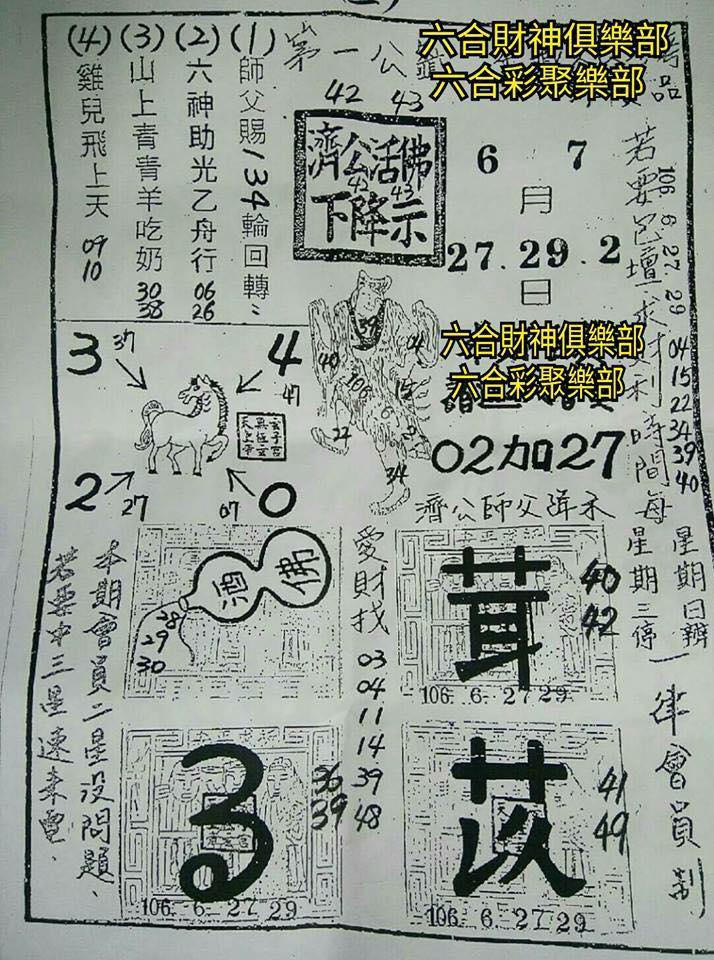 第一公
六合財神俱樂部
六合彩聚樂部
42 43
(1)師父賜134輪回轉
(2)六神助光乙舟行 06 26
(3)山上青青羊吃奶 30 38
(4)雞兒飛上天 09 10
濟公活佛
42 43
下降示
6 7
月
27.29.2
日
若要
106 6 27 29 04 15 22 34 39 40
時間每星期三停
星期日辦
一律會員制
3 37
4 47
2 27
0 07
39
40
04
106
15
6
27
34
六合財神俱樂部
六合彩聚樂部
02加27
濟公師父
佛
酒
28
29
30
愛財找 03 04 11 14 39 48
茸
40
42
106. 6. 27 29
36
39
106. 6. 27 29
苡
41
49
106. 6. 27 29
本期會員二星沒問題、
若要中三星速來電、